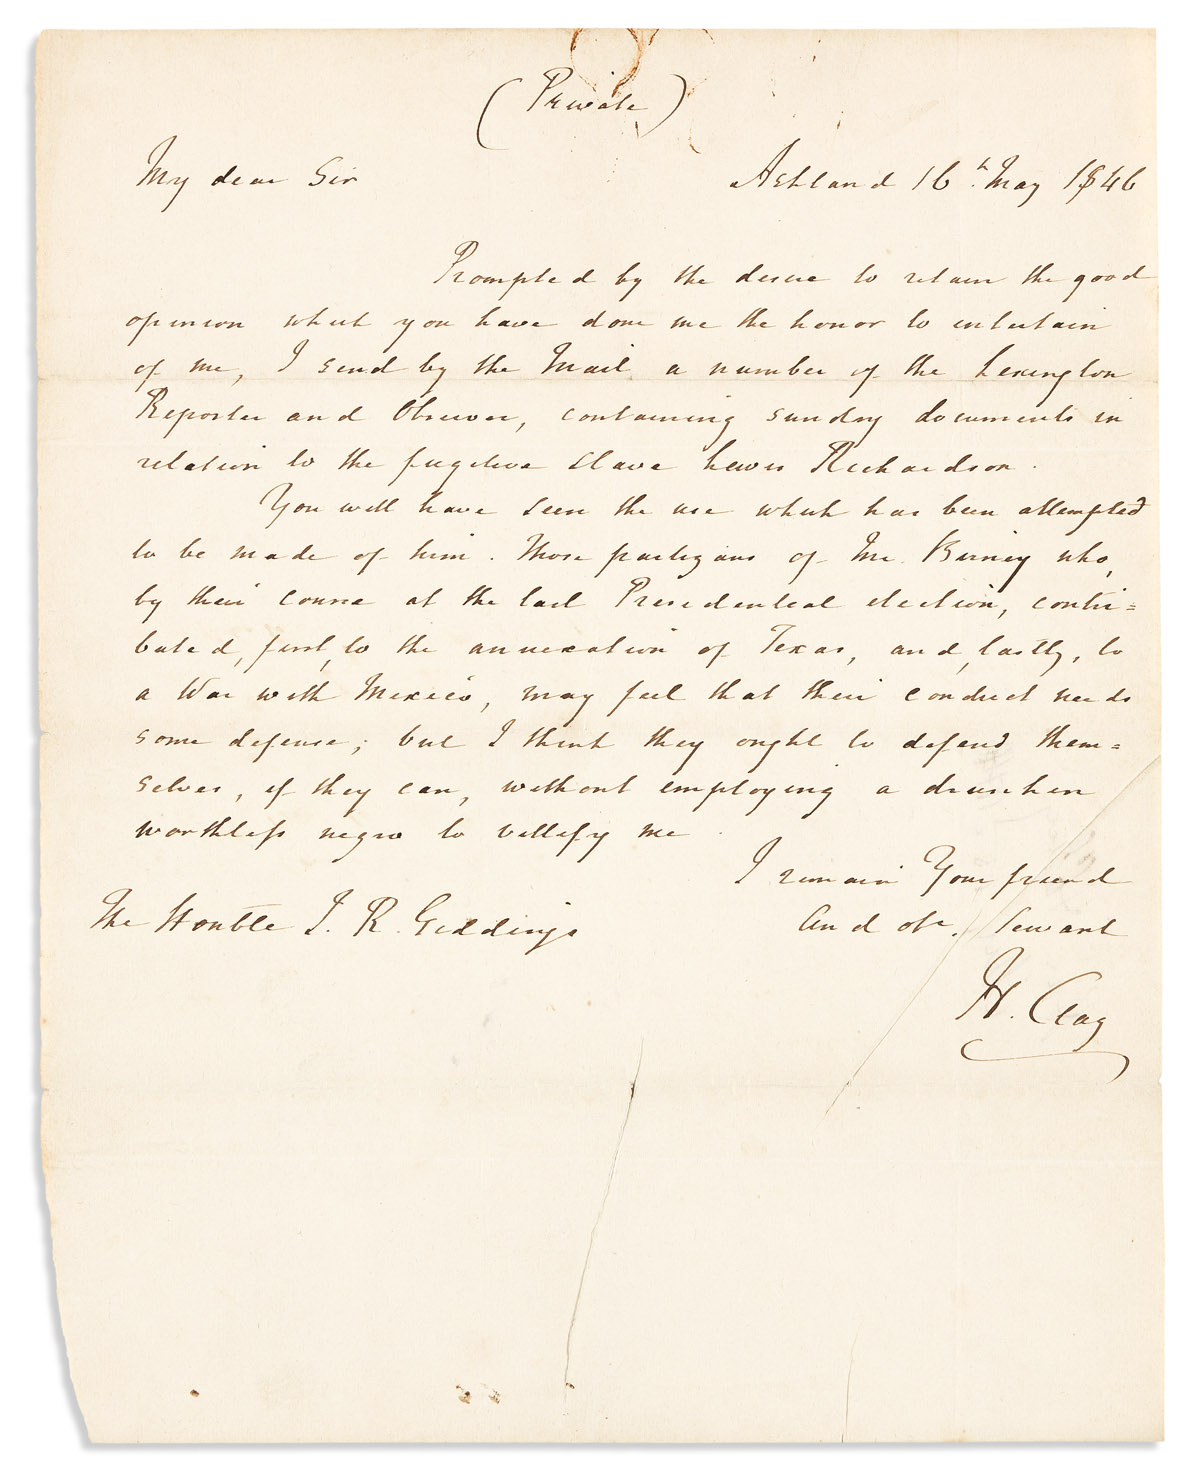 (Private)
My dear Sir Ashland 16h. May 1846
Prompted by the desire to retain the good
opinion which you have done me the honor to entertain
of me, I send by the Mail a number of the Lexington
Reporter and Observer, containing sundry documents in
relation to the fugitive slave Lewis Richardson.
You will have seen the use which has been attempted
to be made of him. Those partizans of Mr. Birney who,
by their course at the last Presidential election, contri=
buted, first, to the annexation of Texas, and, lastly, to
a War with Mexico, may feel that their conduct needs
some defense; but I think they ought to defend them=
selves, if they can, without employing a drunken
worthless negro to villify me.
I remain Your friend
and obt. Servant
The Honble J. R. Giddings
H. Clay